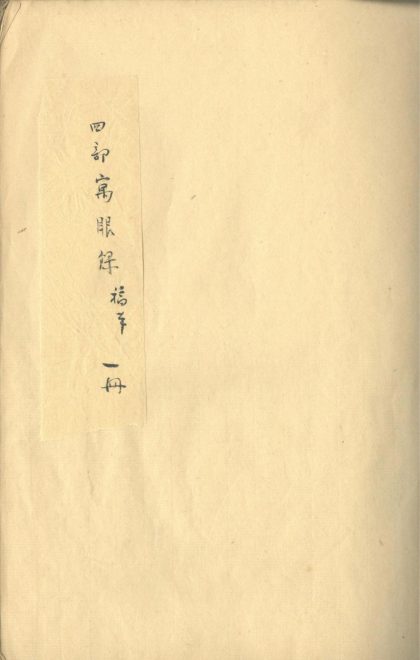 四部寓眼録 稿本 一冊